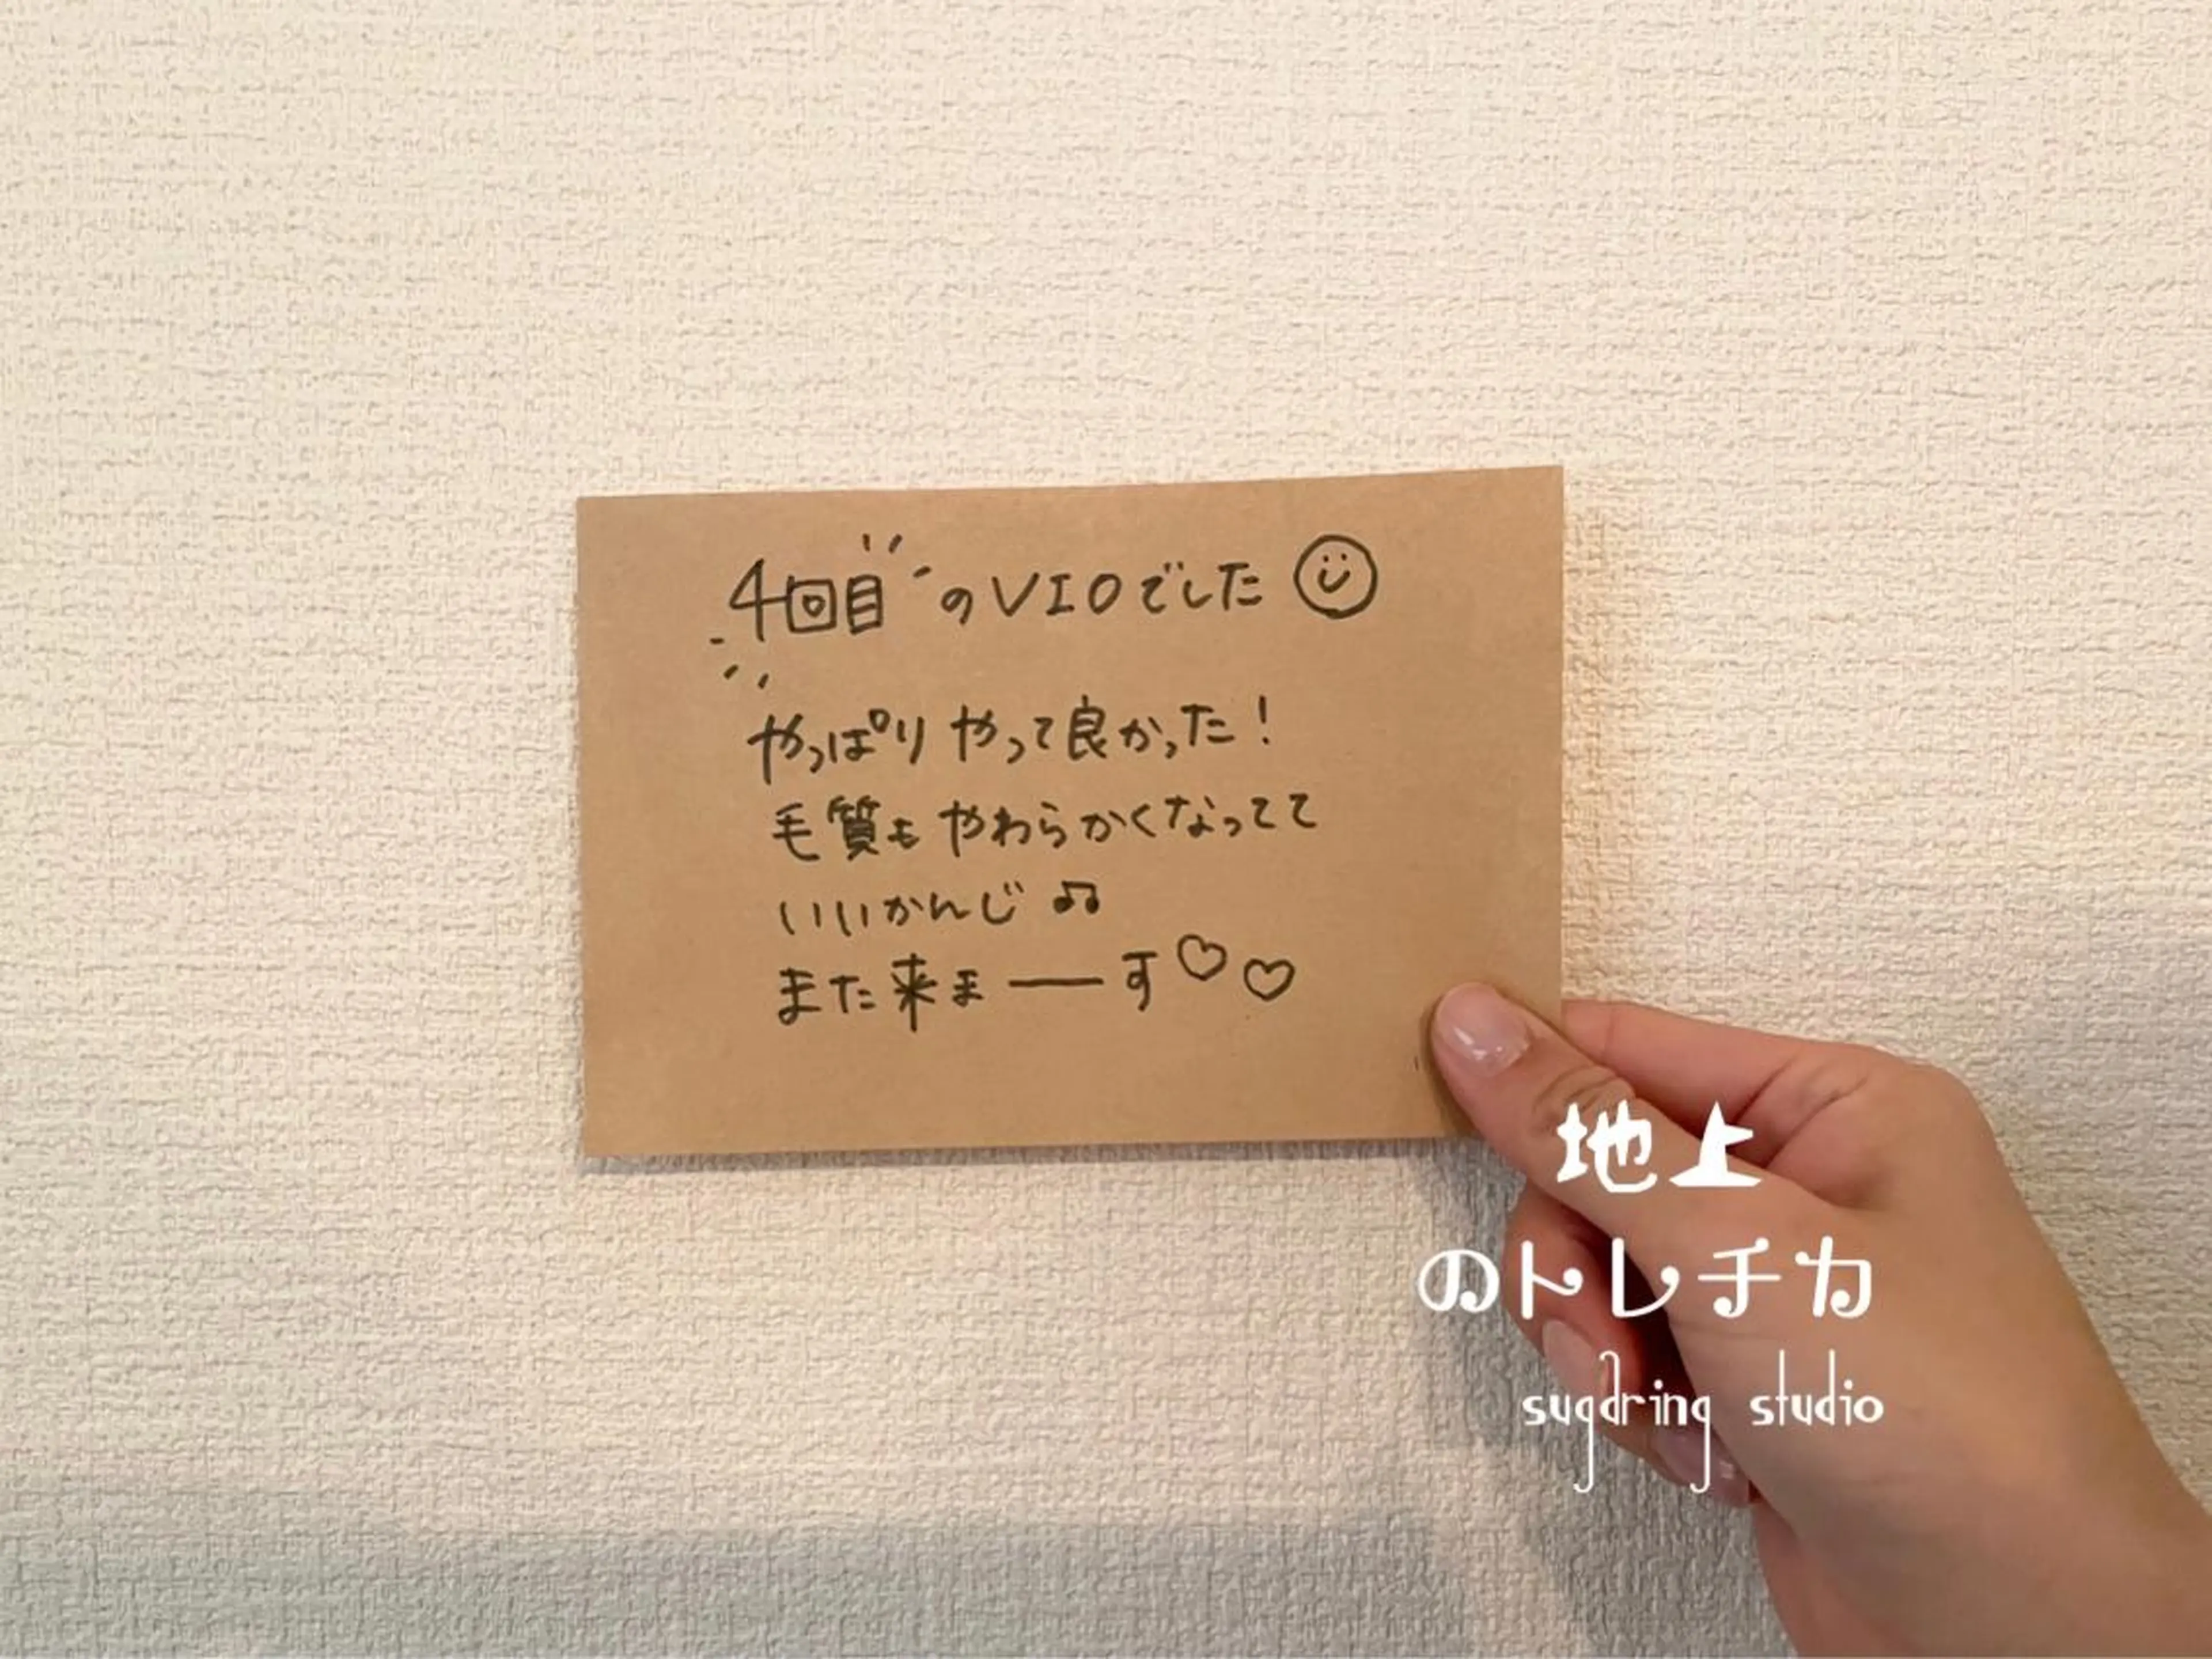 4回目のVIOでした
やっぱりやって良かった！
毛質もやわらかくなってて
いいかんじ♫
また来ま――す♡♡
地上
のトレチカ
sugaring studio